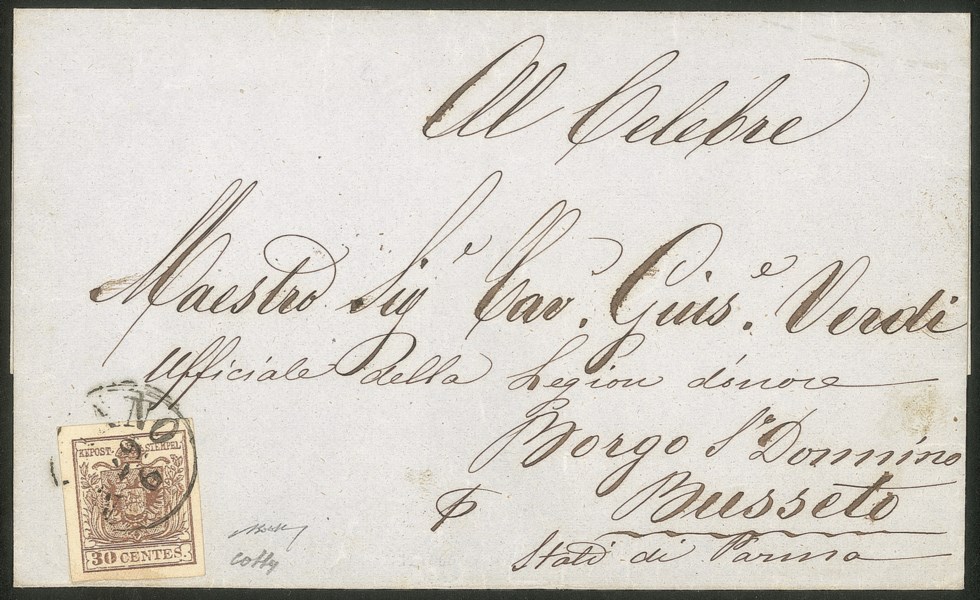 Al Celebre
Maestro Sig.r Cav.r Gius.e Verdi
Ufficiale della Legion d'onore
Borgo S. Donnino
p Busseto
Stati di Parma
ANO
KKPOST-STEMPEL
30 CENTES.